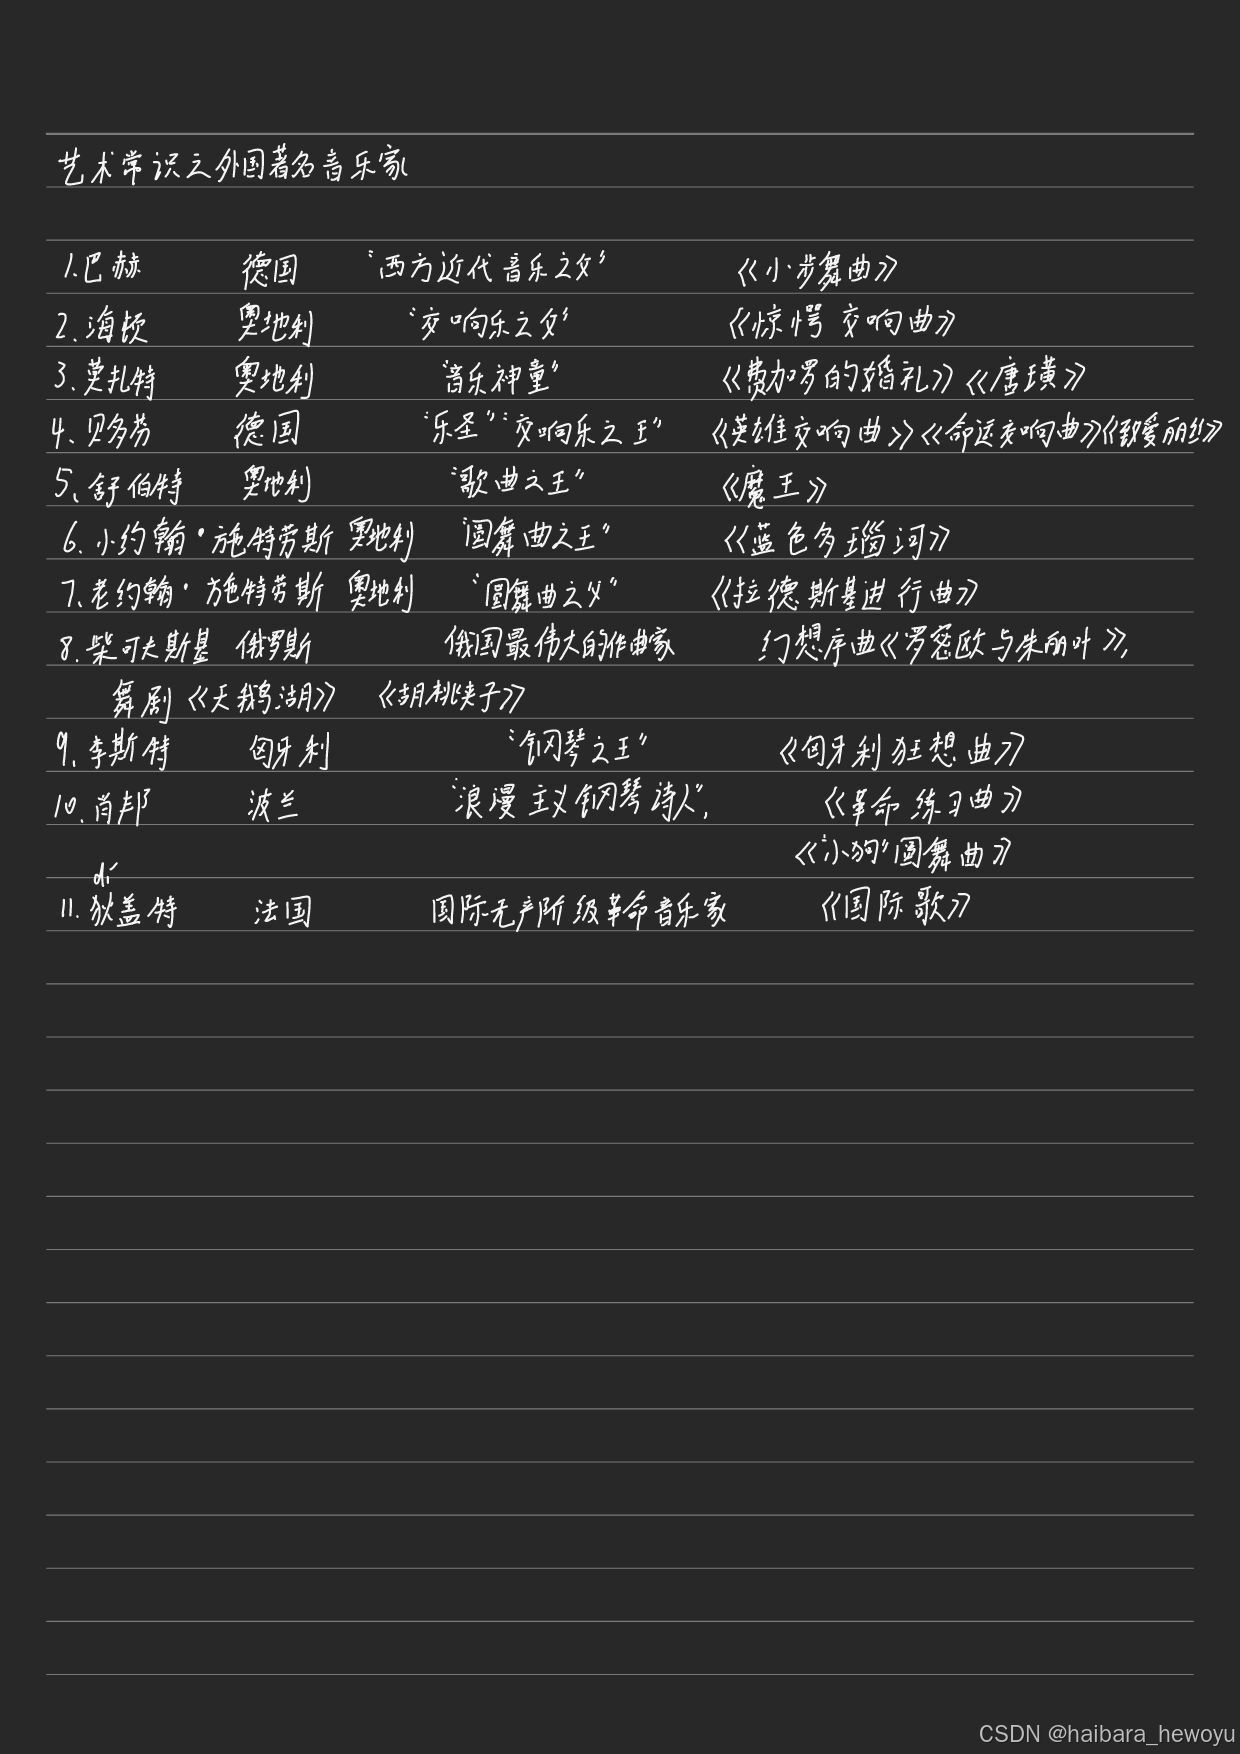 艺术常识之外国著名音乐家
1.巴赫 德国 “西方近代音乐之父” 《小步舞曲》
2.海顿 奥地利 “交响乐之父” 《惊愕交响曲》
3.莫扎特 奥地利 “音乐神童” 《费加罗的婚礼》《唐璜》
4.贝多芬 德国 “乐圣”“交响乐之王” 《英雄交响曲》《命运交响曲》《致爱丽丝》
5.舒伯特 奥地利 “歌曲之王” 《魔王》
6.小约翰·施特劳斯 奥地利 “圆舞曲之王” 《蓝色多瑙河》
7.老约翰·施特劳斯 奥地利 “圆舞曲之父” 《拉德斯基进行曲》
8.柴可夫斯基 俄罗斯 俄国最伟大的作曲家 幻想序曲《罗密欧与朱丽叶》,
舞剧《天鹅湖》 《胡桃夹子》
9.李斯特 匈牙利 “钢琴之王” 《匈牙利狂想曲》
10.肖邦 波兰 “浪漫主义钢琴诗人”, 《革命练习曲》
《“小狗”圆舞曲》
dí
11.狄盖特 法国 国际无产阶级革命音乐家 《国际歌》
CSDN @haibara_hewoyu